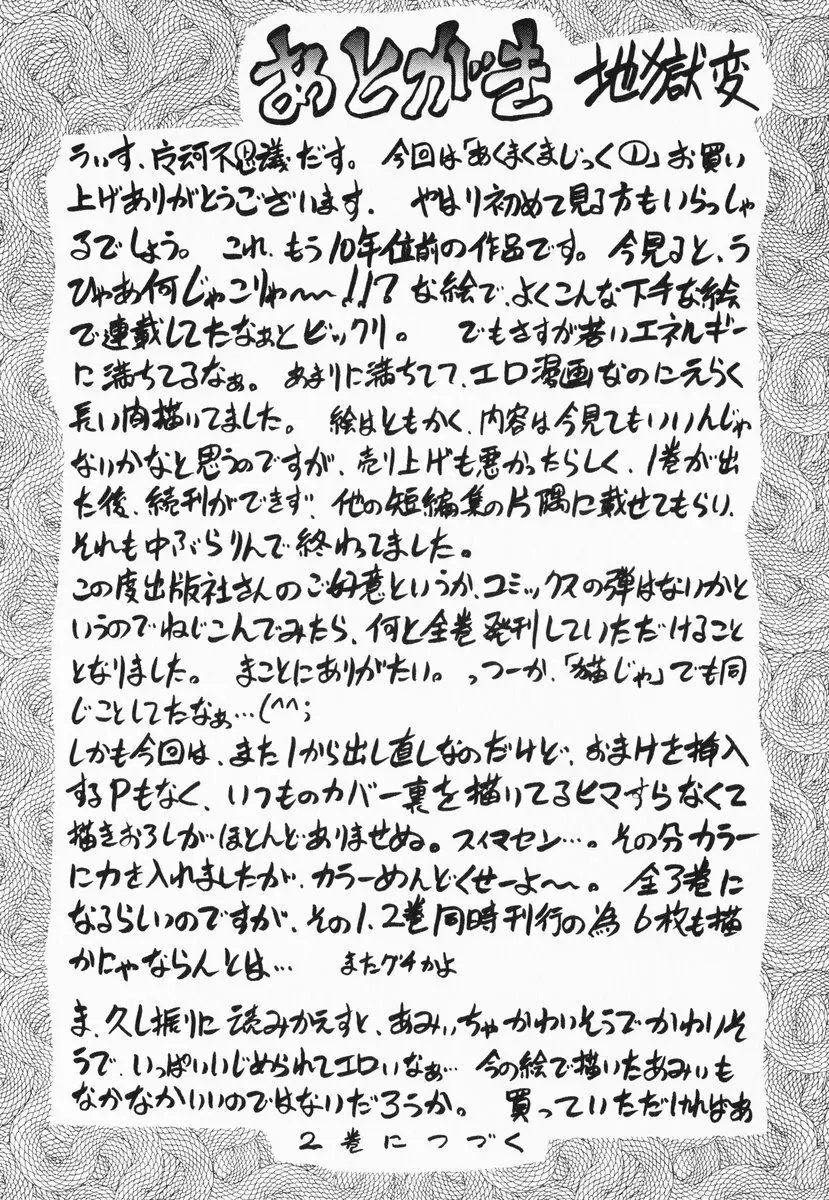 あとがき 地獄変
うぃす、内河不思議だす。 今回は「あくまくまじっく①」お買い
上げありがとうございます。 やはり初めて見る方もいらっしゃ
るでしょう。 これ、もう10年位前の作品です。 今見ると、う
ひゃあ何じゃこりゃ〜〜!!?な絵で、よくこんな下手な絵
で連載してたなぁとビックリ。 でもさすが若いエネルギー
に満ちてるなぁ。 あまりに満ちてて、エロ漫画なのにえらく
長い肉描いてました。 絵はともかく、内容は今見てもいいんじゃ
ないかなと思うのですが、売り上げも悪かったらしく、1巻が出
た後、続刊ができず、他の短編集の片隅に載せてもらい、
それも中ぶらりんで終わってました。
この度出版社さんのご好意というか、コミックスの弾はないかと
いうのでねじこんでみたら、何と全巻発刊していただけること
となりました。 まことにありがたい。 っつーか、「猫じゃ」でも同
じことしてたなぁ…(^^;
しかも今回は、また1から出し直しなのだけど、おまけを挿入
するPもなく、いつものカバー裏を描いてるヒマすらなくて
描きおろしがほとんどありませぬ。スイマセン…。その分カラー
に力を入れましたが、カラーめんどくせーよ〜〜。 全3巻に
なるらしいのですが、その1、2巻同時刊行の為 6枚も描
かにゃならんとは… またグチかよ
ま、久し振りに読みかえすと、あみぃちゃかわいそうでかわいそ
うで、いっぱいいじめられてエロいなぁ… 今の絵で描いたあみぃも
なかなかいいのではないだろうか。 買っていただければぁ
2巻につづく